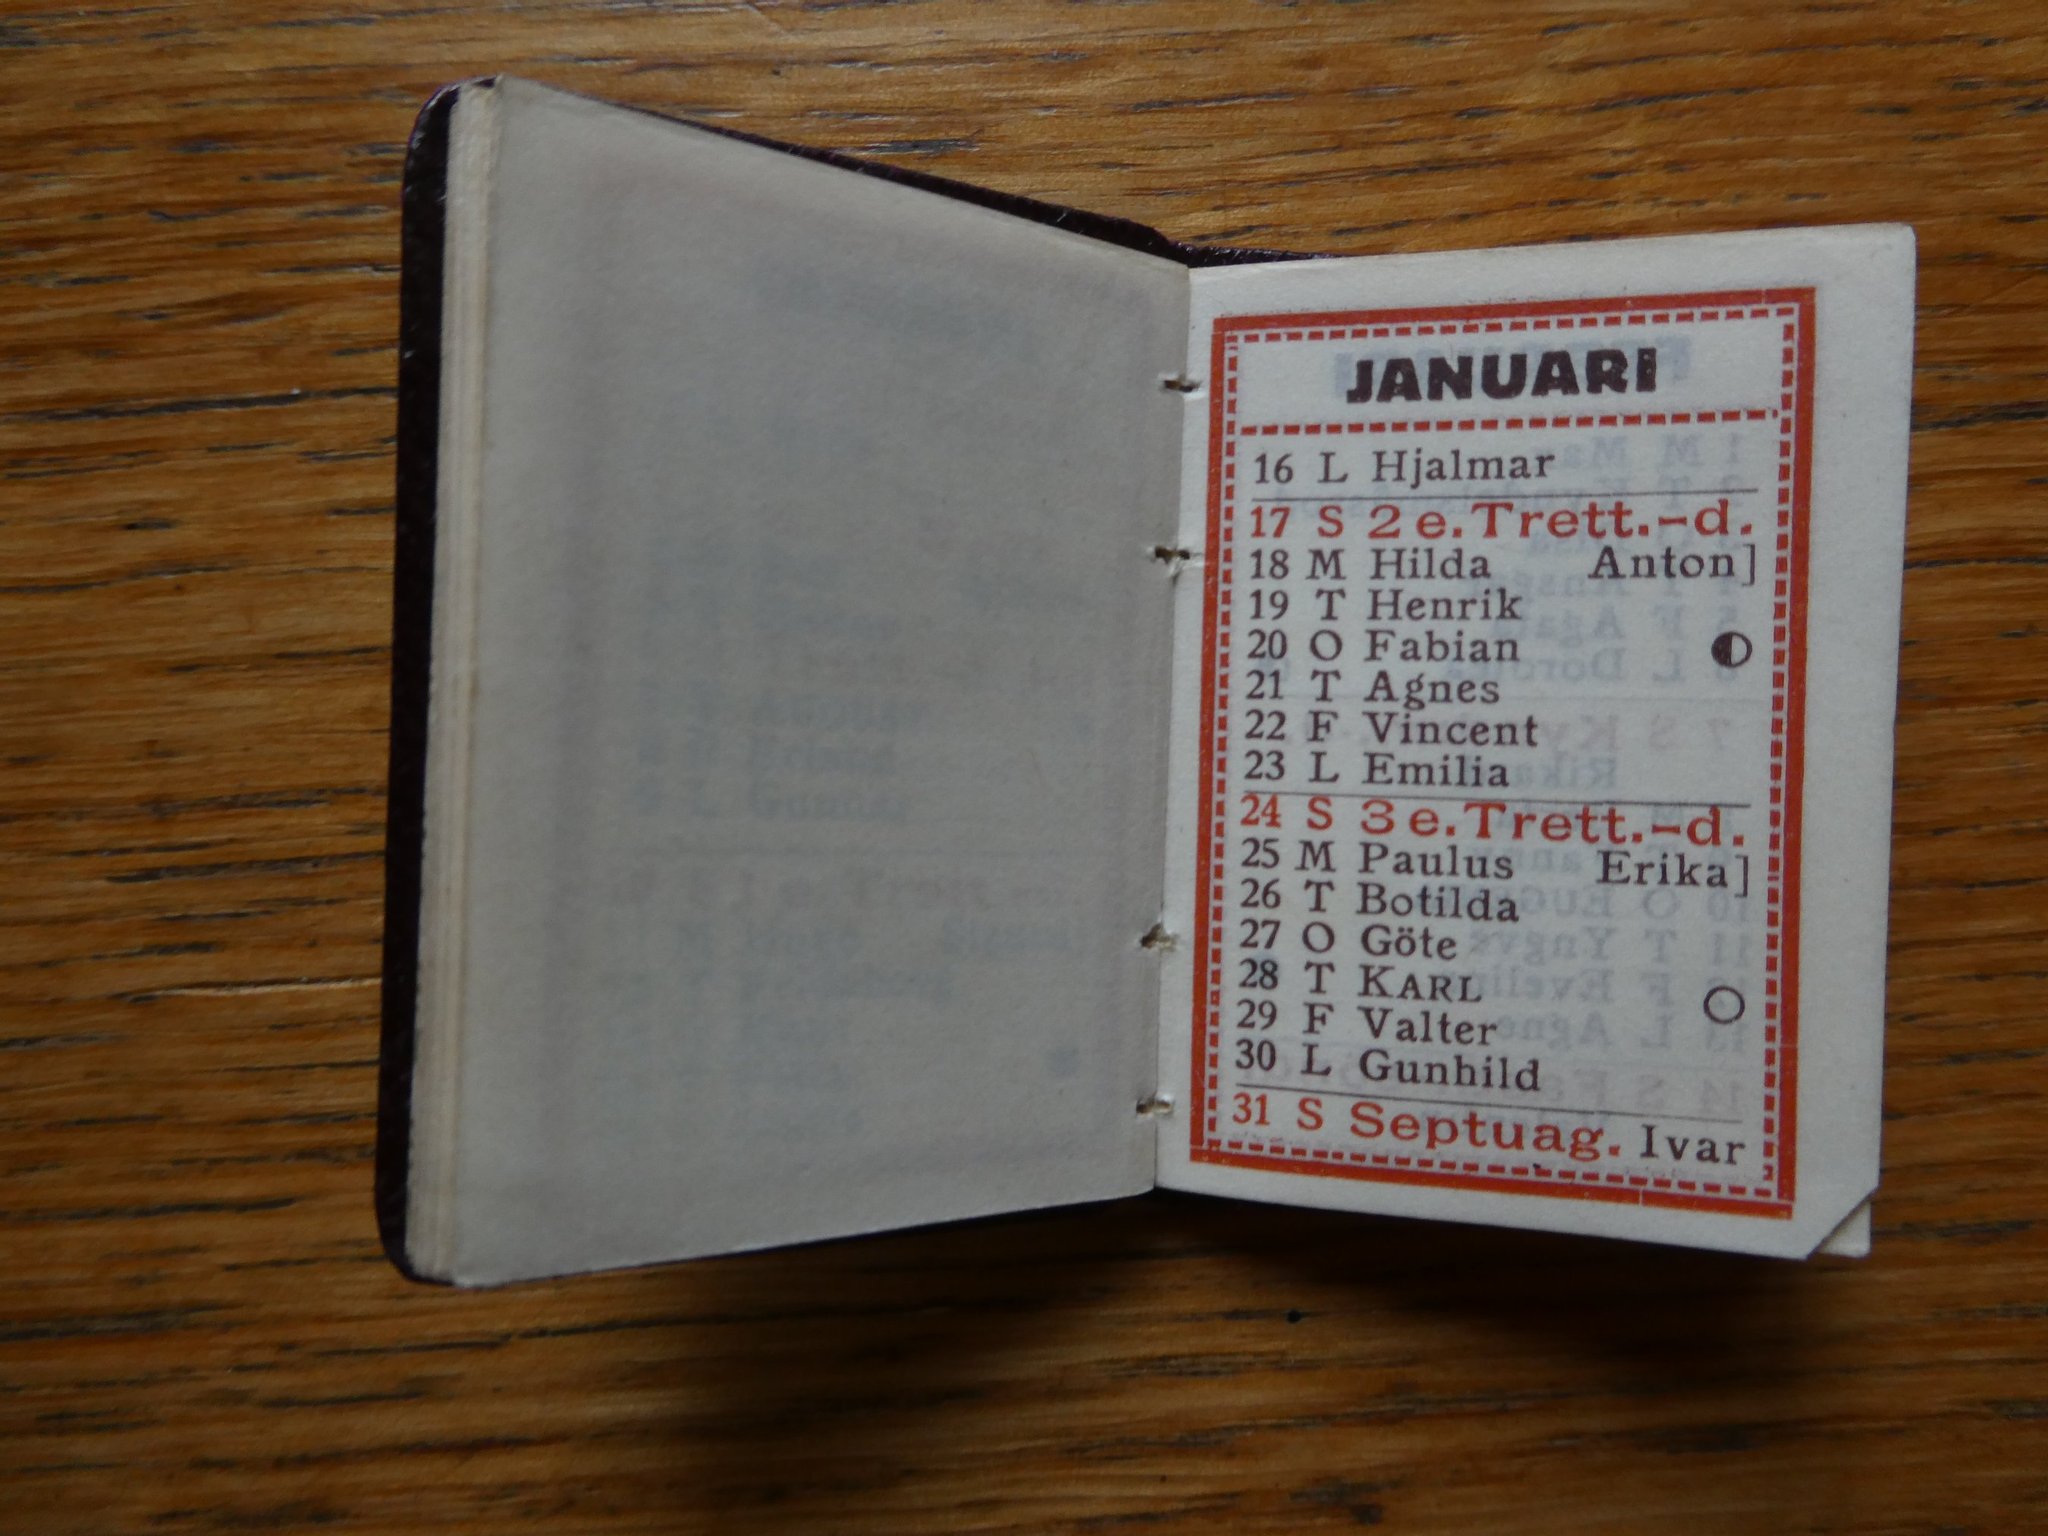 JANUARI
16 L Hjalmar
17 S 2 e. Trett.-d.
18 M Hilda Anton]
19 T Henrik
20 O Fabian
21 T Agnes
22 F Vincent
23 L Emilia
24 S 3 e. Trett.-d.
25 M Paulus Erika]
26 T Botilda
27 O Göte
28 T KARL
29 F Valter
30 L Gunhild
31 S Septuag. Ivar